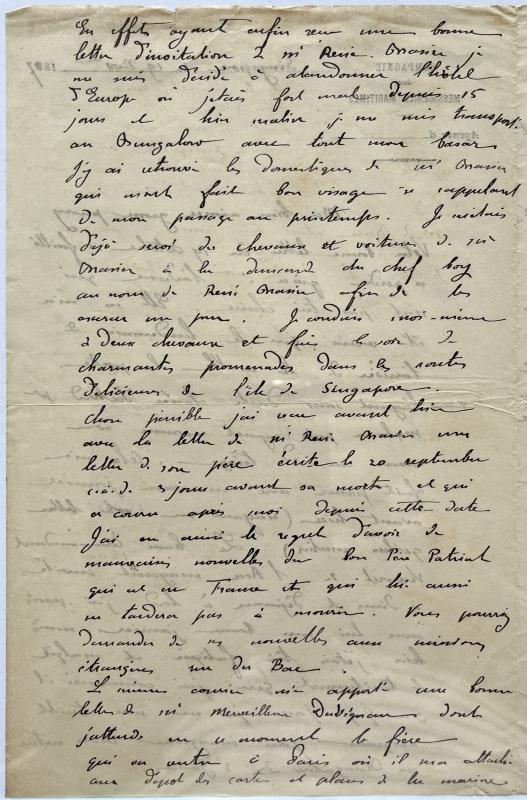 En effet ayant enfin reçu une bonne
lettre d'invitation de Mr René Brasier je
me suis décidé à abandonner l'hôtel
d'Europe où j'étais fort mal depuis 15
jours et hier matin je me suis transporté
au Bungalow avec tout mon bazar
J'y ai retrouvé les domestiques de Mr Brasier
qui m'ont fait bon visage se rappelant
de mon passage au printemps. Je m'étais
déjà servi des chevaux et voitures de Mr
Brasier à la demande du chef boy
au nom de René Brasier afin de les
exercer un peu. Je conduis moi-même
à deux chevaux et fais le soir de
charmantes promenades dans les routes
délicieuses de l'île de Singapore.
Chose pénible j'ai reçu avant hier
avec la lettre de Mr René Brasier une
lettre de son père écrite le 20 septembre
c.à.d. 3 jours avant sa mort et qui
a couru après moi depuis cette date
J'ai eu aussi le regret d'avoir de
mauvaises nouvelles du bon Père Patriat
qui est en France et qui lui aussi
ne tardera pas à mourir. Vous pourriez
demander de ses nouvelles aux missions
étrangères rue du Bac.
Le même courrier m'a apporté une bonne
lettre de Mr Merveilleux Duvignaux dont
j'attends en ce moment le frère
qui va rentrer à Paris où il sera attaché
aux dépôt des cartes et plans de la marine
COMPAGNIE
DES
MESSAGERIES MARITIMES
189